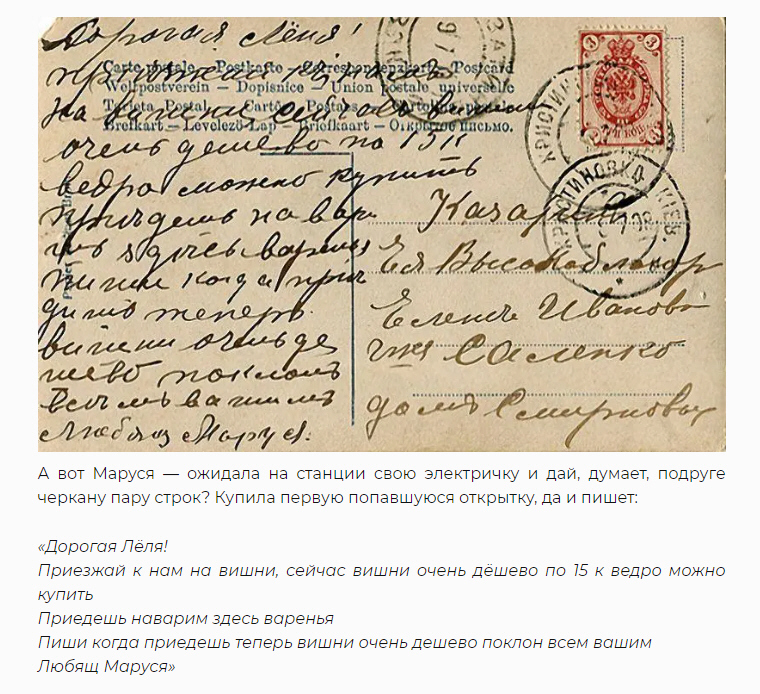 Дорогая Лёля!
приѣзжай к намъ
на вишни сейчас вишни
очень дешево по 15 к
ведро можно купить
приѣдешь на вари
мъ здѣсь варенья
пиши когда приѣ
дишь теперь
вишни очень де
шево поклонъ
всѣмъ вашимъ
Любящ Маруся.
Carte postale — Postkarte — Correspondenzkarte — Postcard
Weltpostverein — Dopisnice — Union postale universelle
Tarjeta Postal — Cartão Postal — Cartolina postale
Brefkort — Levelező-Lap — Briefkaart — Открытое письмо.
3
3
КРИСТИНОВКА КІЕВ.
Казатин
Ея Высокоблагор
Еленѣ Ивановн
г-жѣ Саленко
домъ Смирновых
А вот Маруся — ожидала на станции свою электричку и дай, думает, подруге
черкану пару строк? Купила первую попавшуюся открытку, да и пишет:
«Дорогая Лёля!
Приезжай к нам на вишни, сейчас вишни очень дёшево по 15 к ведро можно
купить
Приедешь наварим здесь варенья
Пиши когда приедешь теперь вишни очень дешево поклон всем вашим
Любящ Маруся»